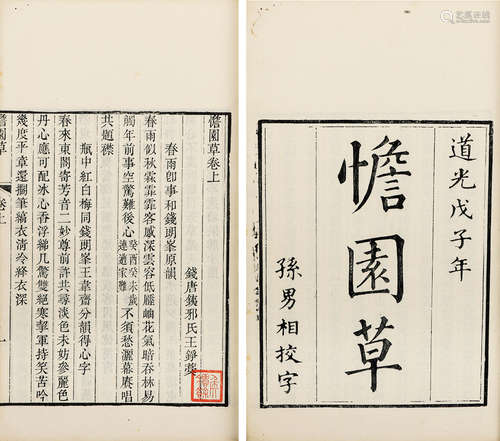 道光戊子年
憺園草
孫男相挍字
憺園草卷上
錢唐鐵邪氏王錚
春雨卽事和錢朗峯原韻
春雨似秋霖霏霏客感深雲容低岫花氣暗吞林易
觸年前事空驚難後心癸酉癸未歲連遭家難不須愁灑幕賡唱
共題襟
瓶中紅白梅同錢朗峯王葦齋分韻得心字
春來東閣寄芳音二妙尊前許共尋淡色未妨參麗色
丹心應可配冰心香浮綈几驚雙絕寒掌軍持笑苦吟
幾度平章還擱筆縞衣清泠絳衣深
憺園草
卷上